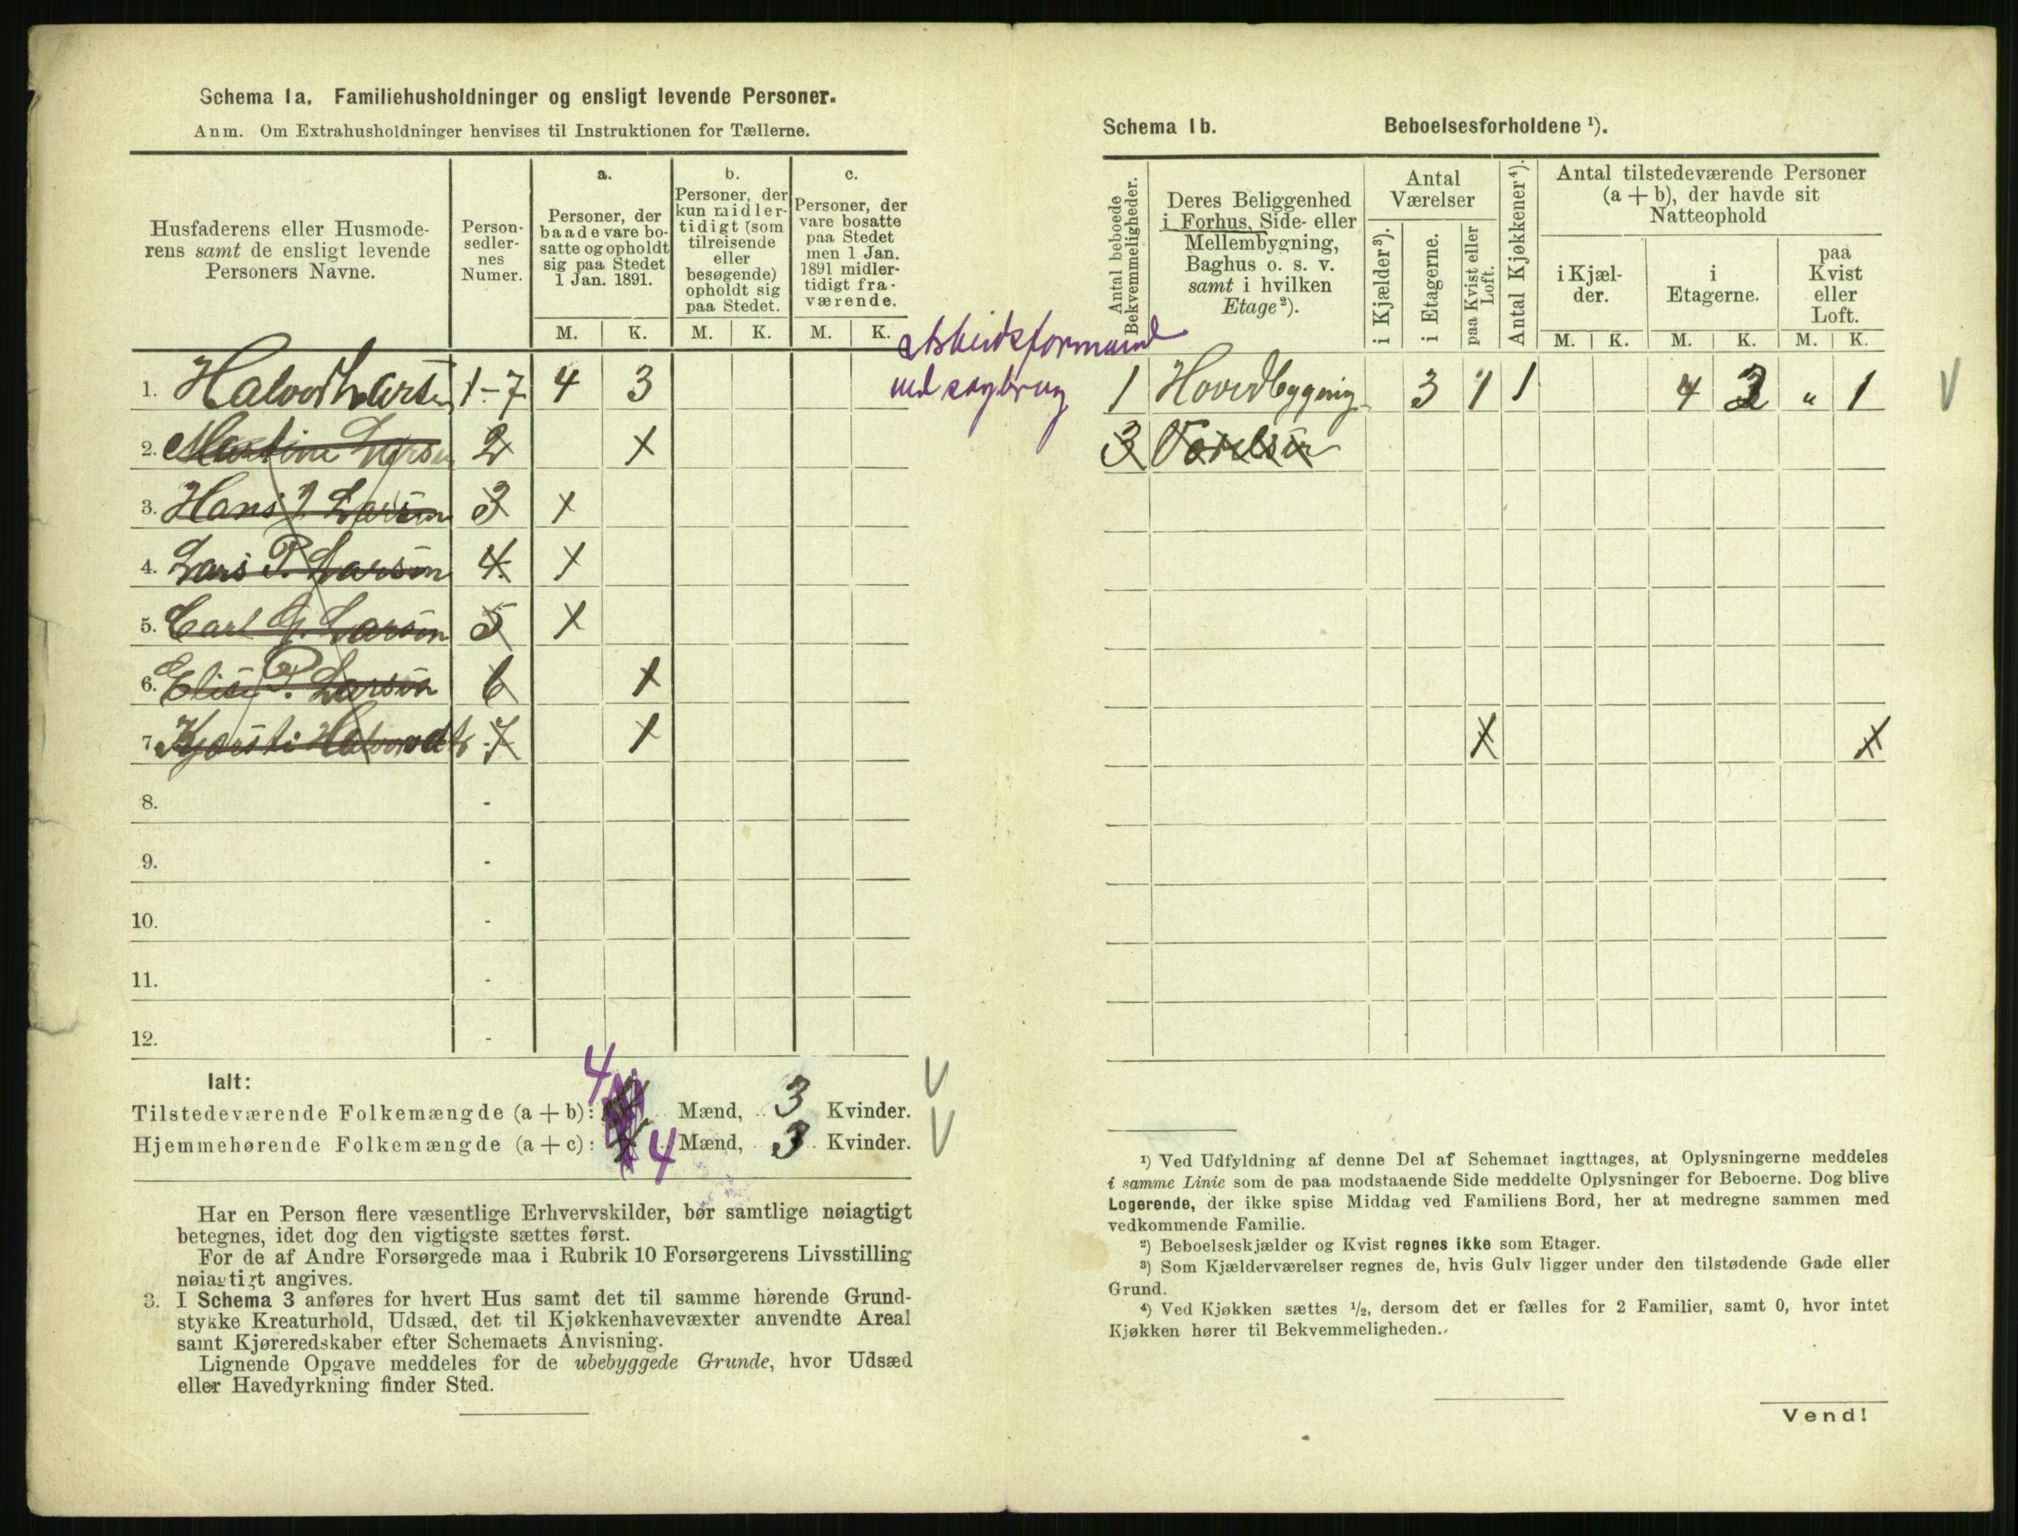 Schema 1a. Familiehusholdninger og ensligt levende Personer.
Anm. Om Extrahusholdninger henvises til Instruktionen for Tællerne.
Husfaderens eller Husmode-
rens samt de ensligt levende
Personers Navne.
Person-
sedler-
nes
Numer.
a.
Personer, der
baade vare bo-
satte og opholdt
sig paa Stedet
1 Jan. 1891.
b.
Personer, der
kun midler-
tidigt (som
tilreisende
eller
besøgende)
opholdt sig
paa Stedet.
c.
Personer, der
vare bosatte
paa Stedet
men 1 Jan.
1891 midler-
tidigt fra-
værende.
M. K. M. K. M. K.
1. Halvor Larsen 1-7 4 3
2. Martine Larsen 2 x
3. Hans J Larsen 3 x
4. Lars P. Larsen 4. x
5. Carl G. Larsen 5 x
6. Elise P. Larsen 6 x
7. Kjersti Halvorsdtr 7 x
8. -
9. -
10. -
11. -
12. -
Ialt:
Tilstedeværende Folkemængde (a + b): 4 Mænd, 3 Kvinder. V
Hjemmehørende Folkemængde (a + c): 4 Mænd, 3 Kvinder. V
Har en Person flere væsentlige Erhvervskilder, bør samtlige nøiagtigt
betegnes, idet dog den vigtigste sættes først.
For de af Andre Forsørgede maa i Rubrik 10 Forsørgerens Livsstilling
nøiagtigt angives.
3. I Schema 3 anføres for hvert Hus samt det til samme hørende Grund-
stykke Kreaturhold, Udsæd, det til Kjøkkenhavevæxter anvendte Areal
samt Kjøreredskaber efter Schemaets Anvisning.
Lignende Opgave meddeles for de ubebyggede Grunde, hvor Udsæd
eller Havedyrkning finder Sted.
Arbeidsformand
ved sagbrug
Schema 1b. Beboelsesforholdene ¹).
Antal beboede
Bekvemmeligheder.
Deres Beliggenhed
i Forhus, Side- eller
Mellembygning,
Baghus o. s. v.
samt i hvilken
Etage²).
Antal
Værelser
i Kjælder³).
i Etagerne.
paa Kvist eller
Loft.
Antal Kjøkkener⁴).
Antal tilstedeværende Personer
(a + b), der havde sit
Natteophold
i Kjæl-
der.
i
Etagerne.
paa
Kvist
eller
Loft.
M. K. M. K. M. K.
1 Hovedbygning 3 1 1 4 2 " 1 V
3 Værelser
x x
¹) Ved Udfyldning af denne Del af Schemaet iagttages, at Oplysningerne meddeles
i samme Linie som de paa modstaaende Side meddelte Oplysninger for Beboerne. Dog blive
Logerende, der ikke spise Middag ved Familiens Bord, her at medregne sammen med
vedkommende Familie.
²) Beboelseskjælder og Kvist regnes ikke som Etager.
³) Som Kjælderværelser regnes de, hvis Gulv ligger under den tilstødende Gade eller
Grund.
⁴) Ved Kjøkken sættes ½, dersom det er fælles for 2 Familier, samt 0, hvor intet
Kjøkken hører til Bekvemmeligheden.
Vend!